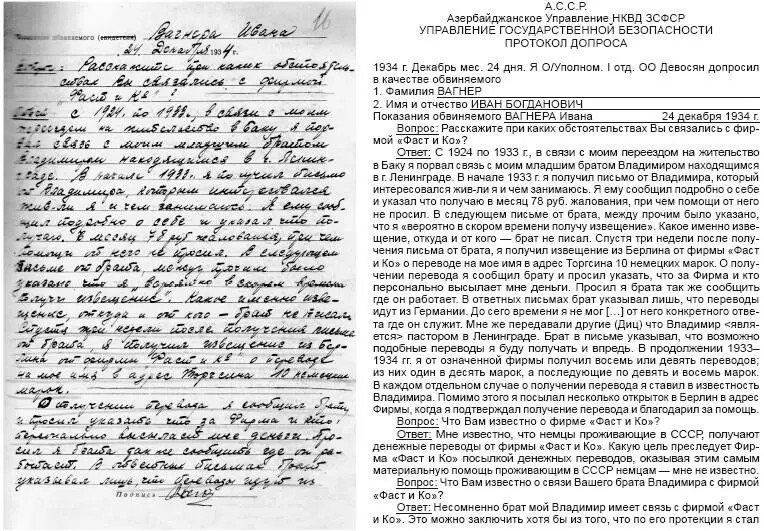 16
обвиняемого (свидетеля) Вагнера Ивана
24 Декабря 1934 г.
Вопрос: Расскажите при каких обстоятель-
ствах Вы связались с фирмой
„Фаст и Ко“?
Ответ: С 1924 по 1933 г., в связи с моим
переездом на жительство в Баку я пор-
вал связь с моим младшим братом
Владимиром находящимся в г. Ленин-
граде. В начале 1933 г. я получил письмо
от Владимира, который интересовался
жив-ли я и чем занимаюсь. Я ему сооб-
щил подробно о себе и указал что по-
лучаю в месяц 78 руб. жалования, при чем
помощи от него не просил. В следующем
письме от брата, между прочим было
указано что я „вероятно в скором времени
получу извещение“. Какое именно изве-
щение, откуда и от кого – брат не писал.
Спустя три недели после получения письма
от брата, я получил извещение из Бер-
лина от фирмы „Фаст и Ко“ о переводе
на мое имя в адрес Торгсина 10 немецких
марок.
О получении перевода я сообщил брату
и просил указать что за Фирма и кто
персонально высылает мне деньги. Про-
сил я брата так же сообщить где он ра-
ботает. В ответных письмах брат
указывал лишь, что переводы идут из
Подпись
А.С.С.Р.
Азербайджанское Управление НКВД ЗСФСР
УПРАВЛЕНИЕ ГОСУДАРСТВЕННОЙ БЕЗОПАСНОСТИ
ПРОТОКОЛ ДОПРОСА
1934 г. Декабрь мес. 24 дня. Я О/Уполном. I отд. ОО Девосян допросил
в качестве обвиняемого
1. Фамилия ВАГНЕР
2. Имя и отчество ИВАН БОГДАНОВИЧ
Показания обвиняемого ВАГНЕРА Ивана 24 декабря 1934 г.
Вопрос: Расскажите при каких обстоятельствах Вы связались с фир-
мой «Фаст и Ко»?
Ответ: С 1924 по 1933 г., в связи с моим переездом на жительство
в Баку я порвал связь с моим младшим братом Владимиром находящимся
в г. Ленинграде. В начале 1933 г. я получил письмо от Владимира, который
интересовался жив-ли я и чем занимаюсь. Я ему сообщил подробно о себе
и указал что получаю в месяц 78 руб. жалования, при чем помощи от него
не просил. В следующем письме от брата, между прочим было указано,
что я «вероятно в скором времени получу извещение». Какое именно изве-
щение, откуда и от кого — брат не писал. Спустя три недели после полу-
чения письма от брата, я получил извещение из Берлина от фирмы «Фаст
и Ко» о переводе на мое имя в адрес Торгсина 10 немецких марок. О полу-
чении перевода я сообщил брату и просил указать, что за Фирма и кто
персонально высылает мне деньги. Просил я брата так же сообщить
где он работает. В ответных письмах брат указывал лишь, что переводы
идут из Германии. До сего времени я не мог [...] от него конкретного отве-
та где он служит. Мне же передавали другие (Диц) что Владимир <явля-
ется> пастором в Ленинграде. Брат в письме указывал, что возможно
подобные переводы я буду получать и впредь. В продолжении 1933–
1934 гг. я от означенной фирмы получил восемь или девять переводов;
из них один в десять марок, а последующие по девять и восемь марок.
В каждом отдельном случае о получении перевода я ставил в известность
Владимира. Помимо этого я посылал несколько открыток в Берлин в адрес
Фирмы, когда я подтверждал получение перевода и благодарил за помощь.
Вопрос: Что Вам известно о фирме «Фаст и Ко»?
Ответ: Мне известно, что немцы проживающие в СССР, получают
денежные переводы от фирмы «Фаст и Ко». Какую цель преследует Фир-
ма «Фаст и Ко» посылкой денежных переводов, оказывая этим самым
материальную помощь проживающим в СССР немцам — мне не известно.
Вопрос: Что Вам известно о связи Вашего брата Владимира с фирмой
«Фаст и Ко»?
Ответ: Несомненно брат мой Владимир имеет связь с фирмой «Фаст
и Ко». Это можно заключить хотя бы из того, что по его протекции я стал